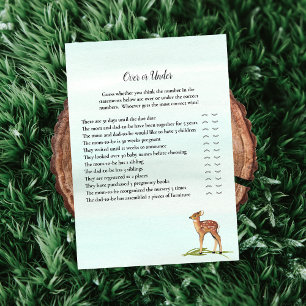 Over or Under
Guess whether you think the number in the
statements below are over or under the correct
numbers. Whoever gets the most correct wins!
There are 50 days until the due date
The mom and dad-to-be have been together for 5 years
The mom and dad-to-be would like to have 3 children
The mom-to-be is 30 weeks pregnant
They waited until 12 weeks to announce
They looked over 50 baby names before choosing
The mom-to-be has 1 sibling
The dad-to-be has 2 siblings
They are registered at 2 places
They have purchased 3 pregnancy books
The mom-to-be reorganized the nursery 3 times
The dad-to-be has assembled 2 pieces of furniture